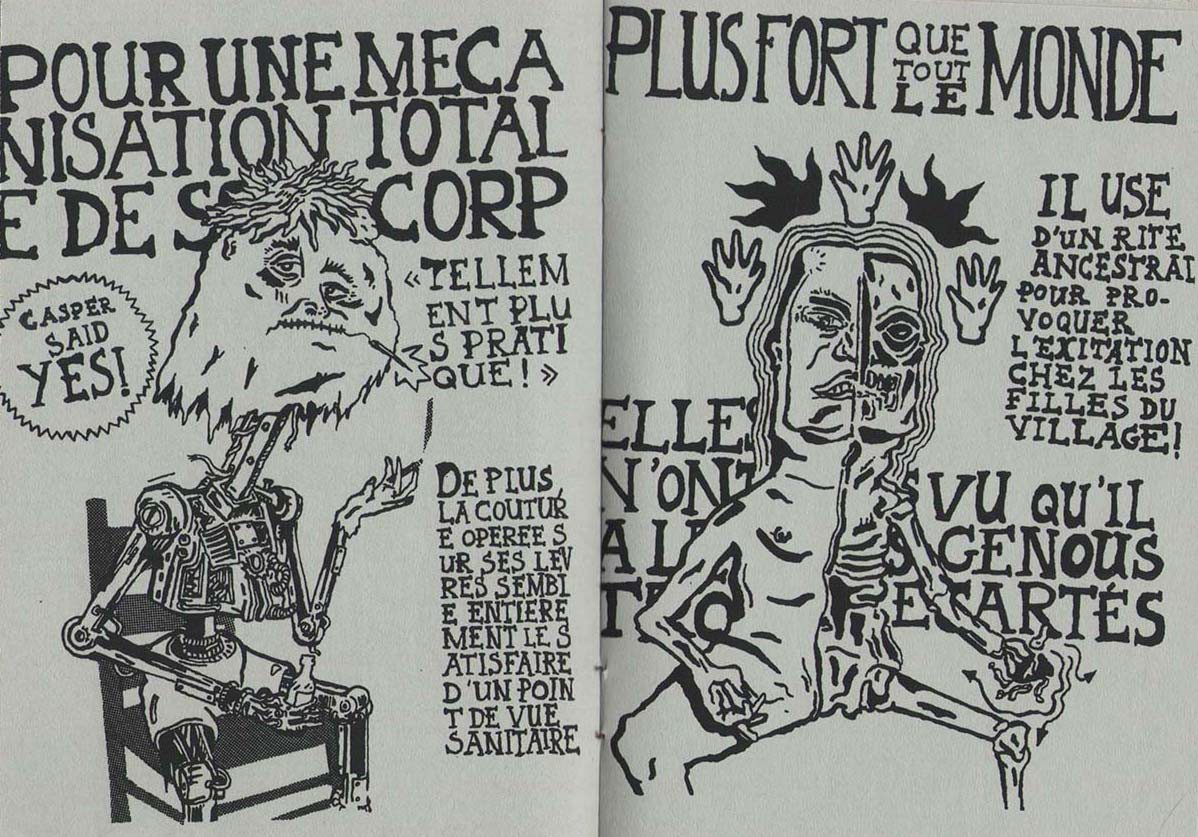 POUR UNE MECA
NISATION TOTAL
E DE S CORP
CASPER
SAID
YES!
«TELLEM
ENT PLU
S PRATI
QUE!»
DE PLUS,
LA COUTUR
E OPEREE S
UR SES LEV
RES SEMBL
E ENTIERE
MENT LE S
ATISFAIRE
D'UN POIN
T DE VUE
SANITAIRE
PLUS FORT QUE
TOUT
LE MONDE
IL USE
D'UN RITE
ANCESTRAL
POUR PRO-
VOQUER
L'EXITATION
CHEZ LES
FILLES DU
VILLAGE!
ELLES
N'ONT S VU QU'IL
A S GENOUS
ECARTÉS